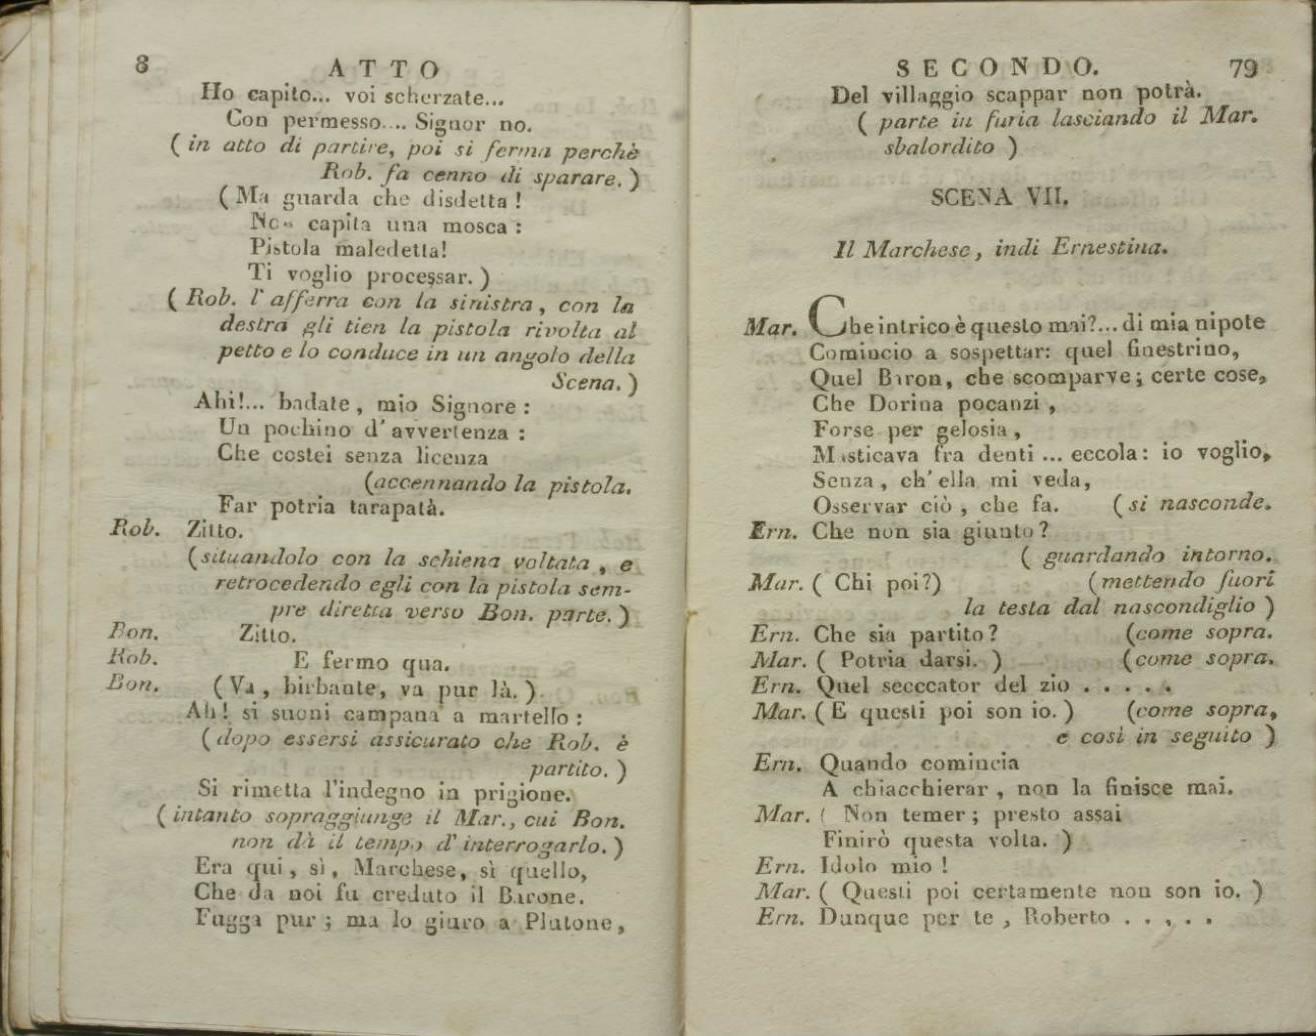 8
ATTO
Ho capito... voi scherzate...
Con permesso.... Signor no.
( in atto di partire, poi si ferma perchè
Rob. fa cenno di sparare. )
( Ma guarda che disdetta !
Non capita una mosca :
Pistola maledetta!
Ti voglio processar. )
( Rob. l'afferra con la sinistra, con la
destra gli tien la pistola rivolta al
petto e lo conduce in un angolo della
Scena. )
Ahi!... badate, mio Signore :
Un pochino d'avvertenza :
Che costei senza licenza
(accennando la pistola.
Far potria tarapatà.
Rob. Zitto.
(situandolo con la schiena voltata, e
retrocedendo egli con la pistola sem-
pre diretta verso Bon. parte. )
Bon. Zitto.
Rob. E fermo qua.
Bon. ( Va, birbante, va pur là. )
Ah! si suoni campana a martello :
(dopo essersi assicurato che Rob. è
partito. )
Si rimetta l'indegno in prigione.
(intanto sopraggiunge il Mar., cui Bon.
non dà il tempo d'interrogarlo. )
Era qui, sì, Marchese, sì quello,
Che da noi fu creduto il Barone.
Fugga pur ; ma lo giuro a Plutone,
SECONDO. 79
Del villaggio scappar non potrà.
( parte in furia lasciando il Mar.
sbalordito )
SCENA VII.
Il Marchese, indi Ernestina.
Mar. Che intrico è questo mai?... di mia nipote
Comincio a sospettar: quel finestrino,
Quel Baron, che scomparve; certe cose,
Che Dorina pocanzi,
Forse per gelosia,
Masticava fra denti ... eccola: io voglio,
Senza, ch'ella mi veda,
Osservar ciò, che fa. ( si nasconde.
Ern. Che non sia giunto?
( guardando intorno.
Mar. ( Chi poi?) (mettendo fuori
la testa dal nascondiglio )
Ern. Che sia partito? (come sopra.
Mar. ( Potria darsi. ) (come sopra.
Ern. Quel seccator del zio . . . . .
Mar. ( E questi poi son io. ) (come sopra,
e così in seguito )
Ern. Quando comincia
A chiacchierar, non la finisce mai.
Mar. ( Non temer; presto assai
Finirò questa volta. )
Ern. Idolo mio !
Mar. ( Questi poi certamente non son io. )
Ern. Dunque per te, Roberto . . . . .